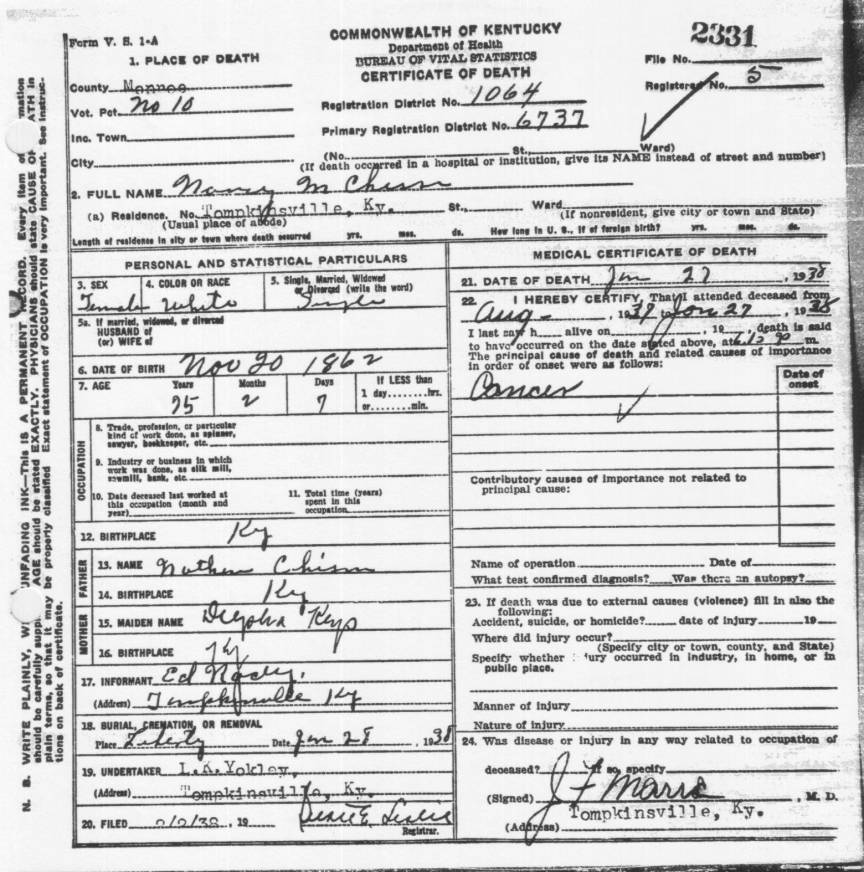 Form V. S. 1-A
COMMONWEALTH OF KENTUCKY
Department of Health
BUREAU OF VITAL STATISTICS
CERTIFICATE OF DEATH
2331
File No.
Registered No. 5
1. PLACE OF DEATH
County Monroe
Vot. Pct. No 10
Inc. Town
City
Registration District No. 1064
Primary Registration District No. 6737
(No. St., Ward)
(If death occurred in a hospital or institution, give its NAME instead of street and number)
2. FULL NAME Nancy M Chism
(a) Residence. No. Tompkinsville, Ky. St., Ward
(Usual place of abode) (If nonresident, give city or town and State)
Length of residence in city or town where death occurred yrs. mos. ds. How long in U. S., if of foreign birth? yrs. mos. ds.
PERSONAL AND STATISTICAL PARTICULARS
3. SEX 4. COLOR OR RACE 5. Single, Married, Widowed
or Divorced (write the word)
Female White Single
5a. If married, widowed, or divorced
HUSBAND of
(or) WIFE of
6. DATE OF BIRTH Nov 20 1862
7. AGE Years Months Days If LESS than
1 day........hrs.
or........min.
75 2 7
OCCUPATION
8. Trade, profession, or particular
kind of work done, as spinner,
sawyer, bookkeeper, etc.
9. Industry or business in which
work was done, as silk mill,
sawmill, bank, etc.
10. Date deceased last worked at
this occupation (month and
year)
11. Total time (years)
spent in this
occupation
12. BIRTHPLACE Ky
FATHER
13. NAME Nathan Chism
14. BIRTHPLACE Ky
MOTHER
15. MAIDEN NAME Keys
16. BIRTHPLACE Ky
17. INFORMANT Ed
(Address) Tompkinsville Ky
18. BURIAL, CREMATION, OR REMOVAL
Place Liberty Date Jan 28, 1938
19. UNDERTAKER L.K.Yokley,
(Address) Tompkinsville, Ky.
20. FILED 2/2/38, 19 Leslie
Registrar.
MEDICAL CERTIFICATE OF DEATH
21. DATE OF DEATH Jan 27, 1938
22. I HEREBY CERTIFY, That I attended deceased from
Aug-, 1937 to Jan 27, 1938
I last saw h alive on, 19, death is said
to have occurred on the date stated above, at m.
The principal cause of death and related causes of importance
in order of onset were as follows:
Date of
onset
Cancer
Contributory causes of importance not related to
principal cause:
Name of operation Date of
What test confirmed diagnosis? Was there an autopsy?
23. If death was due to external causes (violence) fill in also the
following:
Accident, suicide, or homicide? date of injury 19
Where did injury occur?
(Specify city or town, county, and State)
Specify whether injury occurred in industry, in home, or in
public place.
Manner of injury
Nature of injury
24. Was disease or injury in any way related to occupation of
deceased? If so, specify
(Signed) J F Marrs, M. D.
(Address) Tompkinsville, Ky.
N. B. WRITE PLAINLY, UNFADING INK—This IS A PERMANENT RECORD. Every item of
should be carefully AGE should be stated EXACTLY. PHYSICIANS should state CAUSE OF DEATH in
plain terms, so that it may be properly classified. Exact statement of OCCUPATION is very important. See instruc-
tions on back of certificate.